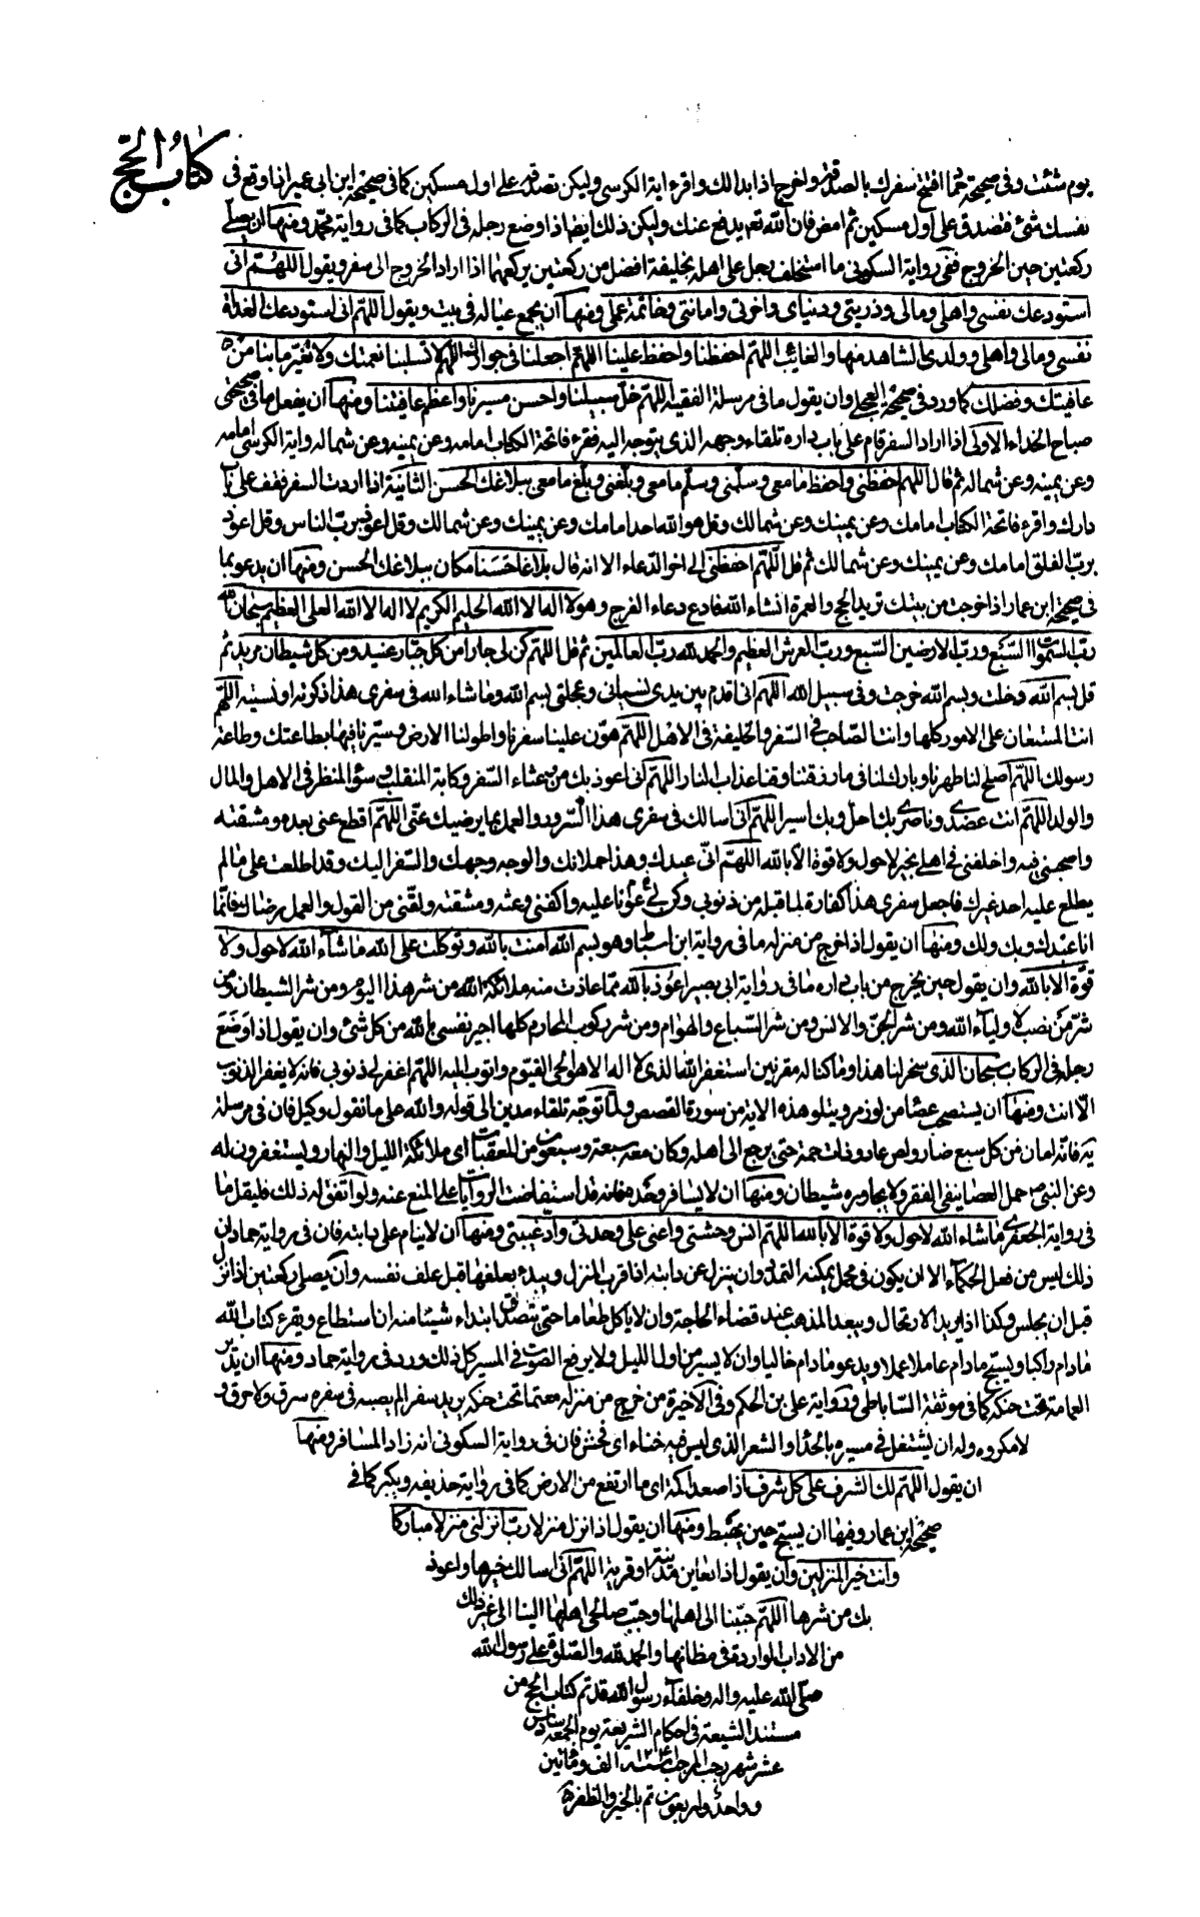 كتاب الحج
يوم شئت وفى صحيحة حماد افتتح سفرك بالصدقة واخرج اذا بدا لك واقرء اية الكرسى وليكن تصدقه على اول مسكين كما فى صحيحة ابن ابى عمير اذا وقع فى
نفسك شئ فتصدق على اول مسكين ثم امض فان الله تعم يدفع عنك وليكن ذلك ايضا اذا وضع رجله فى الركاب كما فى رواية محمد ومنها ان يصلى
ركعتين حين الخروج ففى رواية السكونى ما استخلف رجل على اهله بخليفة افضل من ركعتين يركعهما اذا اراد الخروج الى سفر ويقول اللهم انى
استودعك نفسى واهلى ومالى وذريتى ودنياى واخرتى وامانتى وخاتمة عملى ومنها ان يجمع عياله فى بيت ويقول اللهم انى استودعك الغداة
نفسى ومالى واهلى وولدى الشاهد منها والغائب اللهم احفظنا واحفظ علينا اللهم اجعلنا فى جوارك اللهم لا تسلبنا نعمتك ولا تغير ما بنا من
عافيتك وفضلك كما ورد فى صحيحة العجلى وان يقول ما فى مرسلة الفقيه اللهم خل سبيلنا واحسن مسيرنا واعظم عافيتنا ومنها ان يفعل ما فى صحيحتى
صباح الحذاء الاولى اذا اراد السفر قام على باب داره تلقاء وجهه الذى يتوجه اليه فقرء فاتحة الكتاب امامه وعن يمينه وعن شماله واية الكرسى امامه
وعن يمينه وعن شماله ثم قال اللهم احفظنى واحفظ ما معى وسلمنى وسلم ما معى وبلغنى وبلغ ما معى ببلاغك الحسن الثانية اذا اردت السفر فقف على باب
دارك واقرء فاتحة الكتاب امامك وعن يمينك وعن شمالك وقل هو الله احد امامك وعن يمينك وعن شمالك وقل اعوذ برب الناس وقل اعوذ
برب الفلق امامك وعن يمينك وعن شمالك ثم قل اللهم احفظنى الى اخر الدعاء الا انه قال بلاغا حسنا مكان ببلاغك الحسن ومنها ان يدعو بما
فى صحيحة ابن عمار اذا خرجت من بيتك تريد الحج والعمرة انشاء الله فادع دعاء الفرج وهو لا اله الا الله الحليم الكريم لا اله الا الله العلى العظيم سبحان الله
رب السموات السبع ورب الارضين السبع ورب العرش العظيم والحمد لله رب العالمين ثم قل اللهم كن لى جارا من كل جبار عنيد ومن كل شيطان مريد ثم
قل بسم الله دخلت وبسم الله خرجت وفى سبيل الله اللهم انى اقدم بين يدى نسيانى وعجلتى بسم الله وما شاء الله فى سفرى هذا ذكرته او نسيته اللهم
انت المستعان على الامور كلها وانت الصاحب فى السفر والخليفة فى الاهل اللهم هون علينا سفرنا واطو لنا الارض وسيرنا فيها بطاعتك وطاعة
رسولك اللهم اصلح لنا ظهرنا وبارك لنا فى ما رزقتنا وقنا عذاب النار اللهم انى اعوذ بك من وعثاء السفر وكابة المنقلب وسوء المنظر فى الاهل والمال
والولد اللهم انت عضدى وناصرى بك احل وبك اسير اللهم انى اسالك فى سفرى هذا السرور والعمل بما يرضيك عنى اللهم اقطع عنى بعده ومشقته
واصحبنى فيه واخلفنى فى اهلى بخير لا حول ولا قوة الا بالله اللهم انى عبدك وهذا حملانك والوجه وجهك والسفر اليك وقد اطلعت على ما لم
يطلع عليه احد غيرك فاجعل سفرى هذا كفارة لما قبله من ذنوبى وكن لى عونا عليه واكفنى وعثه ومشقته ولقنى من القول والعمل رضاك فانما
انا عبدك وبك ولك ومنها ان يقول اذا خرج من منزله ما فى رواية ابن اسباط وهو بسم الله امنت بالله وتوكلت على الله ما شاء الله لا حول ولا
قوة الا بالله وان يقول حين يخرج من باب داره ما فى رواية ابى بصير اعوذ بالله مما عاذت منه ملائكة الله من شر هذا اليوم ومن شر الشيطان ومن
شر من نصب لاولياء الله ومن شر الجن والانس ومن شر السباع والهوام ومن شر ركوب المحارم كلها اجير نفسى بالله من كل شئ وان يقول اذا وضع
رجله فى الركاب سبحان الذى سخر لنا هذا وما كنا له مقرنين استغفر الله الذى لا اله الا هو الحى القيوم واتوب اليه اللهم اغفر لى ذنوبى فانه لا يغفر الذنوب
الا انت ومنها ان يستصحب عصا من لوز مر ويتلو هذه الاية من سورة القصص ولما توجه تلقاء مدين الى قوله والله على ما نقول وكيل فان فى مرسلة
يه فانه امان من كل سبع ضار ولص عاد وذات حمة حتى يرجع الى اهله وكان معه سبعة وسبعون من المعقبات اى ملائكة الليل والنهار ويستغفرون له
وعن النبى ص حمل العصا ينفى الفقر ولا يجاوره شيطان ومنها ان لا يسافر وحده فانه قد استفاضت الروايا على المنع عنه ولو اتفق له ذلك فليقل ما
فى رواية الجعفرى ما شاء الله لا حول ولا قوة الا بالله اللهم انس وحشتى واعنى على وحدتى واد غيبتى ومنها ان لا ينام على دابته فان فى رواية حماد ان
ذلك ليس من فعل الحكماء الا ان يكون فى محمل يمكنه التمدد وان ينزل عن دابته اذا قرب المنزل ويبدء بعلفها قبل علف نفسه وان يصلى ركعتين اذا نزل
قبل ان يجلس وكذا اذا يريد الارتحال ويبعد المذهب عند قضاء الحاجة وان لا ياكل طعاما حتى يتصدق ابتداء شيئا منه ان استطاع ويقرء كتاب الله
مادام راكبا ويسبح مادام عاملا عملا ويدعو مادام خاليا وان لا يسير من اول الليل ولا يرفع الصوت فى المسير كل ذلك ورد فى رواية حماد ومنها ان يتدير
العمامة تحت حنكه كما فى موثقة الساباطى ورواية على بن الحكم وفى الاخيرة من خرج من منزله معتما تحت حنكه يريد سفرا لم يصبه فى سفره سرق ولا حرق و
لا مكروه وله ان يشتغل فى مسيره بالحداء والشعر الذى ليس فيه خناء اى فحش فان فى رواية السكونى انه زاد المسافر ومنها
ان يقول اللهم لك الشرف على كل شرف اذا صعد اكمة اى ما ارتفع من الارض كما فى رواية حذيفه ويكبر كما فى
صحيحة ابن عمار وفيها ان يسبح حين يهبط ومنها ان يقول اذا نزل منزلا رب انزلنى منزلا مباركا
وانت خير المنزلين وان يقول اذا يعاين مدينة او قرية اللهم انى اسالك خيرها واعوذ
بك من شرها اللهم حببنا الى اهلها وحبب صالحى اهلها الينا الى غير ذلك
من الاداب الواردة فى مظانها والحمد لله والصلوة على رسول الله
صلى الله عليه واله وخلفاء رسول الله قد تم كتاب الحج من
مستند الشيعة فى احكام الشريعة يوم الجمعة سادس
عشر شهر رجب المرجب سنة ١٢٤١ الف ومأتين
وواحد واربعون تم بالخير والظفر